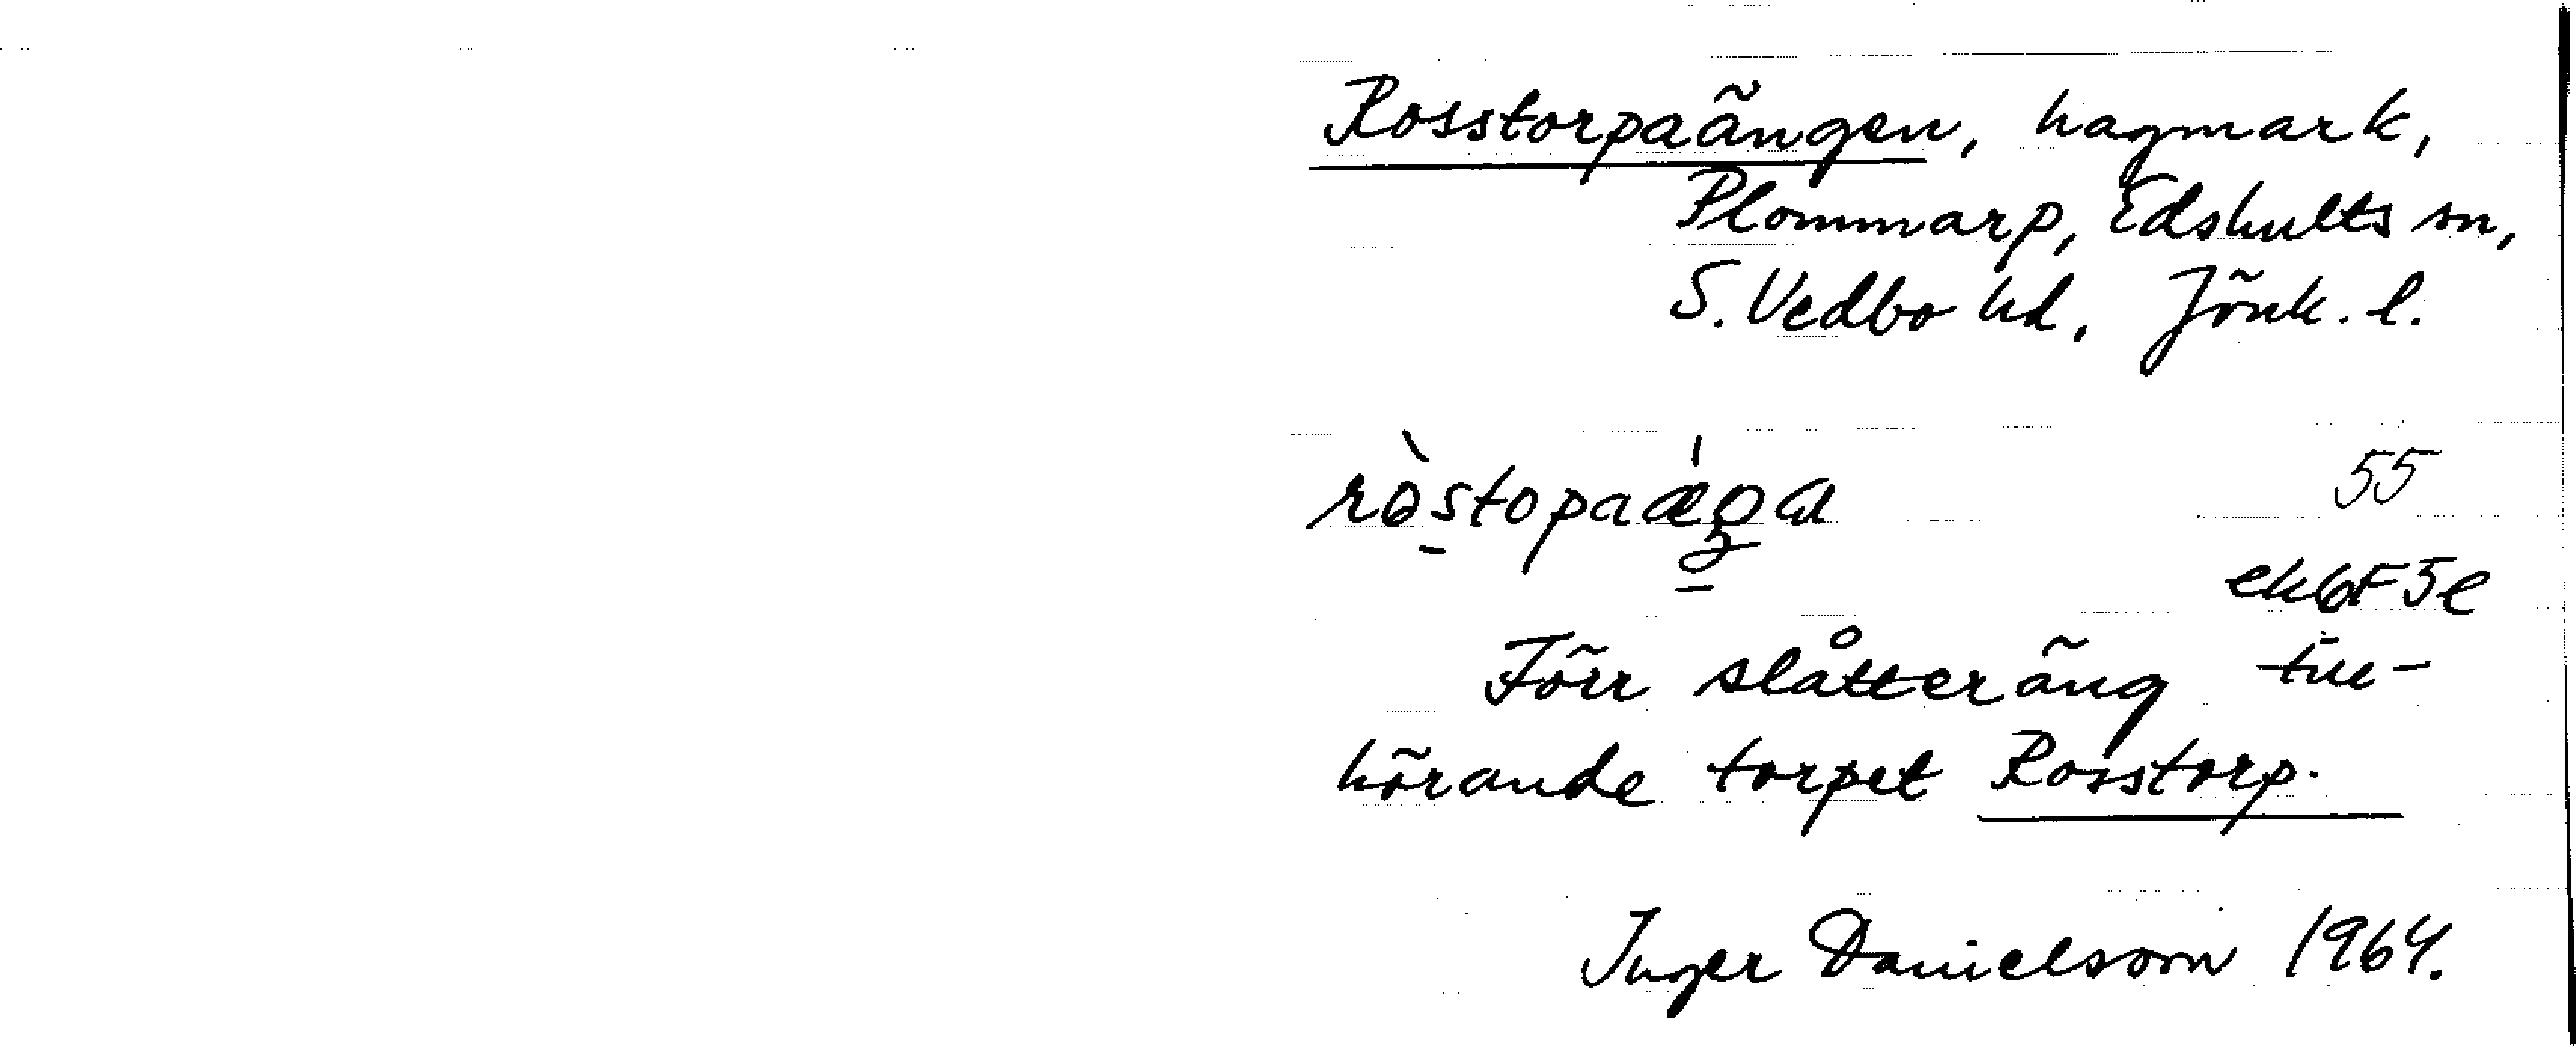 Rosstorpaängen, hagmark,
Plommarp, Edshults sn,
S. Vedbo hd, Jönk. l.
55
ek6F5e
Förr slåtteräng till-
hörande torpet Rosstorp.
Inger Danielsson 1964.